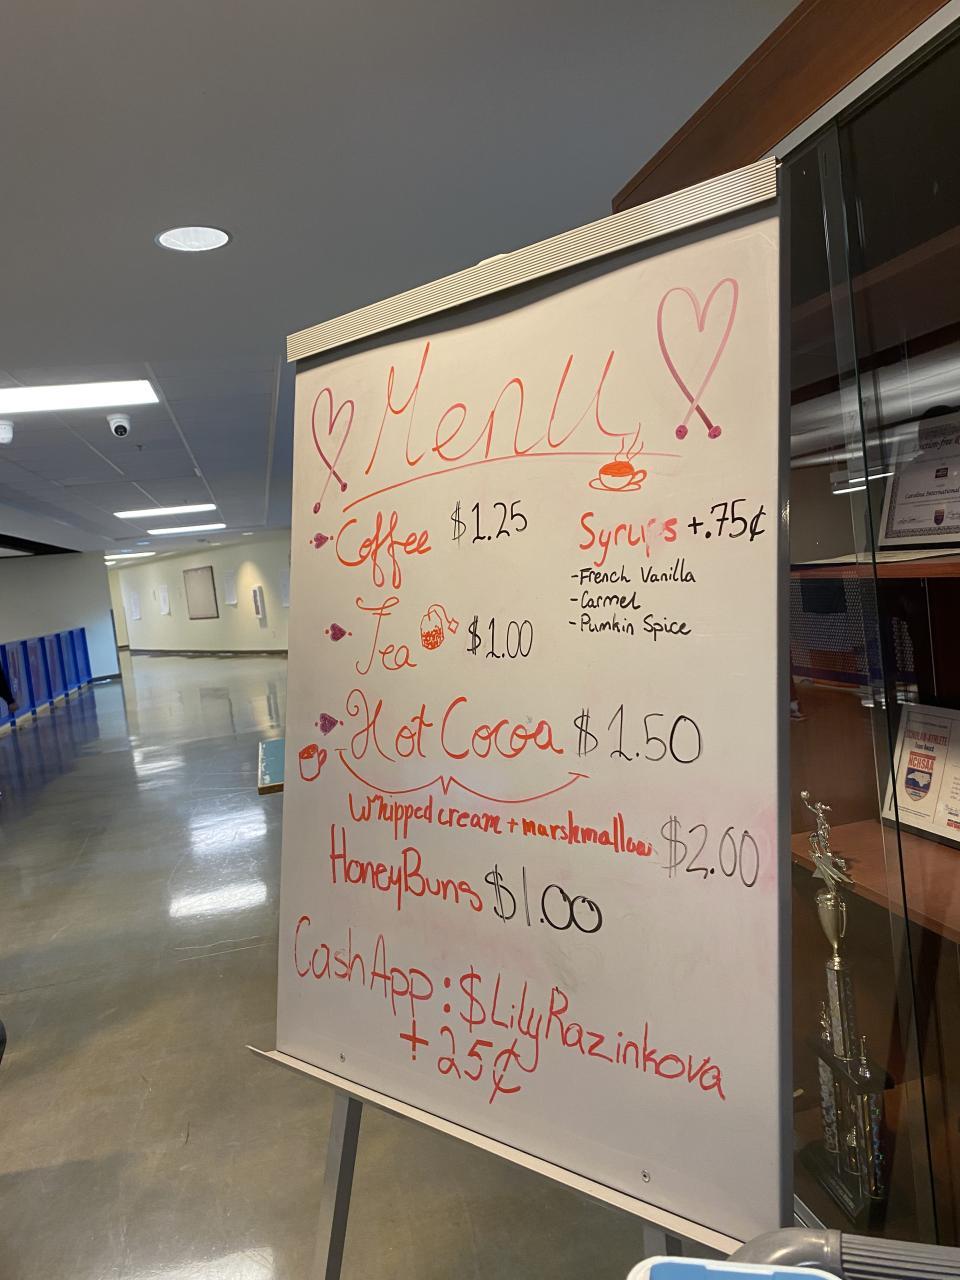 Menu
Coffee $1.25
Syrups +.75¢
-French Vanilla
-Carmel
-Pumkin Spice
Tea $1.00
Hot Cocoa $1.50
Whipped cream + marshmallow $2.00
HoneyBuns $1.00
CashApp: $LilyRazinkova
+25¢
Carolina International
SCHOLAR-ATHLETE
Team Award
NCHSAA